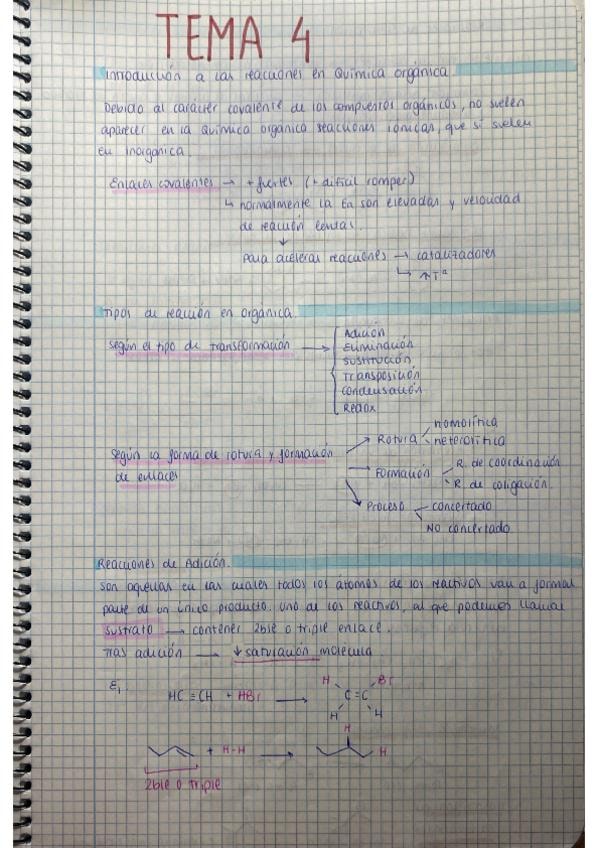 TEMA 4
Introducción a las reacciones en Química orgánica.
Debido al carácter covalente de los compuestos orgánicos, no suelen
aparecer en la Química orgánica reacciones iónicas, que si suelen
en inorgánica.
Enlaces covalentes → + fuertes (+ dificil romper)
↳ normalmente la Ea son elevadas y velocidad
de reacción lentas.
↓
Para acelerar reacciones → catalizadores
↳ ↑Tª
Tipos de reacción en orgánica.
según el tipo de transformación →
Adición
Eliminación
Sustitución
Transposición
Condensación
Redox
según la forma de rotura y formación
de enlaces
→ Rotura
homolítica
heterolítica
→ Formación
R. de coordinación
R. de coligación
→ Proceso
concertado
NO concertado
Reacciones de Adición.
Son aquellas en las cuales todos los átomos de los reactivos van a formar
parte de un único producto. Uno de los reactivos, al que podemos llamar
sustrato → contener 2ble o triple enlace.
Tras adición → ↓ saturación molécula
Ej:
HC ≡ CH + HBr →
H Br
C = C
H H
+ H-H →
H
H
2ble o triple